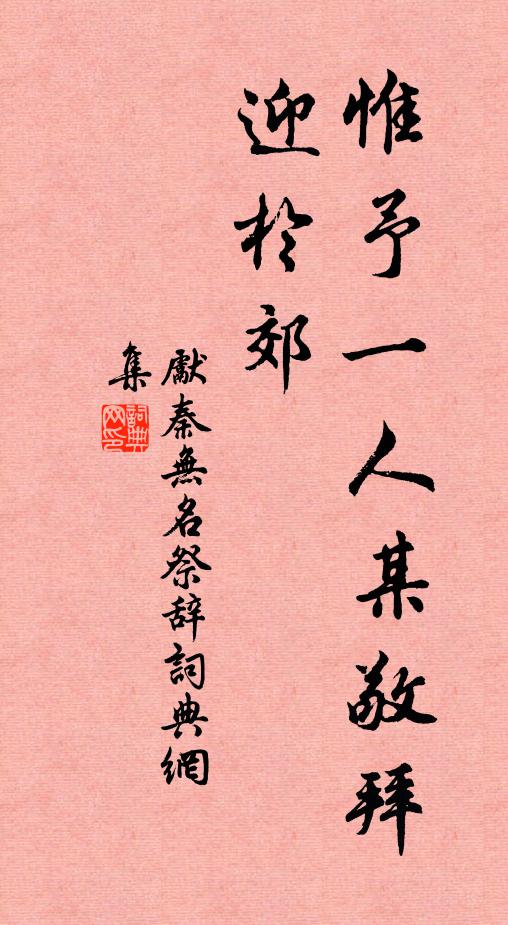 惟予一人某敬拜
迎於郊
獻秦無名祭辞詞典網
集
詞典
网印